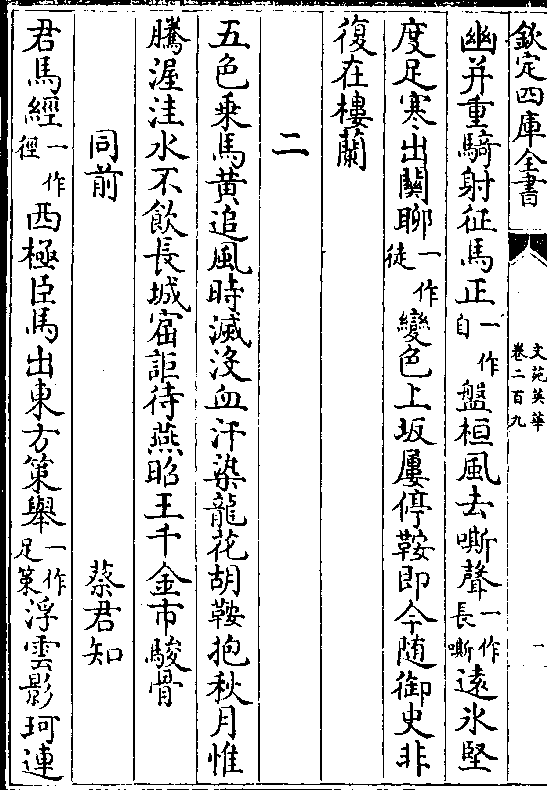 欽定四庫全書
文苑英華
卷二百九
一
幽并重騎射征馬正一作自盤桓風去嘶聲一作長嘶遠氷堅
度足寒出關聊一作徒變色上坂屢停鞍即今随御史非
復在樓蘭
二
五色乗馬黄追風時滅沒血汗染龍花胡鞍抱秋月惟
騰渥洼水不飲長城窟詎待燕昭王千金市駿骨
同前
蔡君知
君馬經一作徑西極臣馬出東方策舉一作足策浮雲影珂連